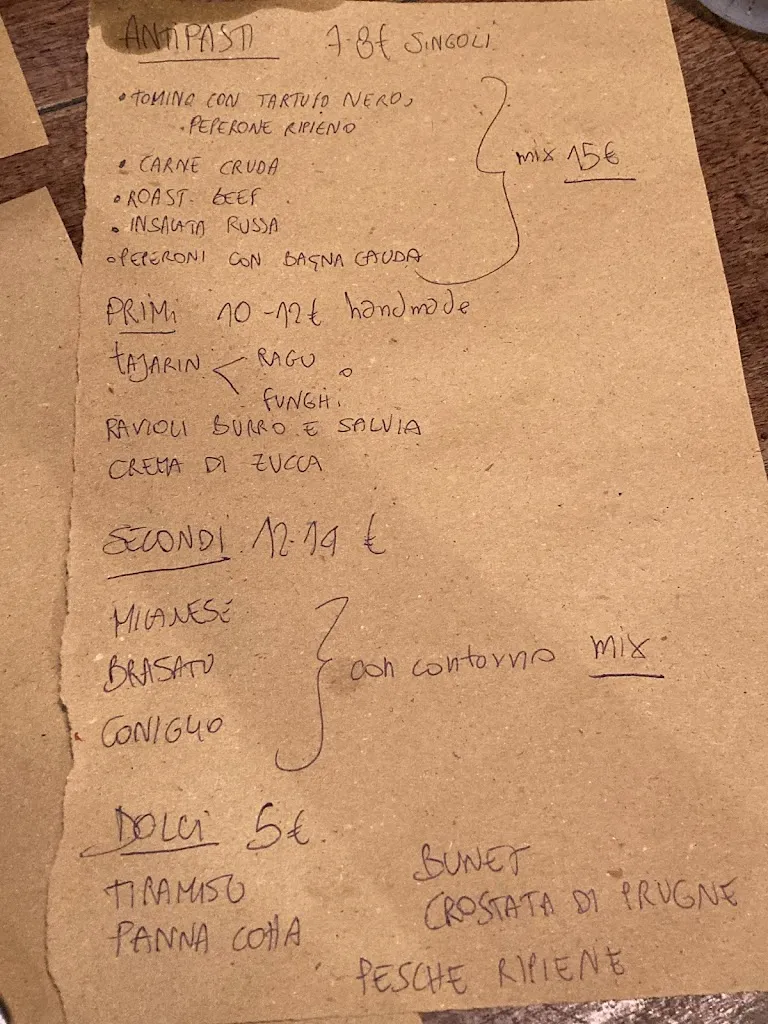 ANTIPASTI 7-8€ SINGOLI
• TOMINO CON TARTUFO NERO,
• PEPERONE RIPIENO
• CARNE CRUDA
• ROAST-BEEF
• INSALATA RUSSA
• PEPERONI CON BAGNA CAUDA
mix 15€
PRIMI 10-12€ handmade
TAJARIN < RAGU o
FUNGHI
RAVIOLI BURRO E SALVIA
CREMA DI ZUCCA
SECONDI 12-14 €
MILANESE
BRASATO
CONIGLIO
con contorno mix
DOLCI 5€
TIRAMISU
PANNA COTTA
BUNET
CROSTATA DI PRUGNE
PESCHE RIPIENE